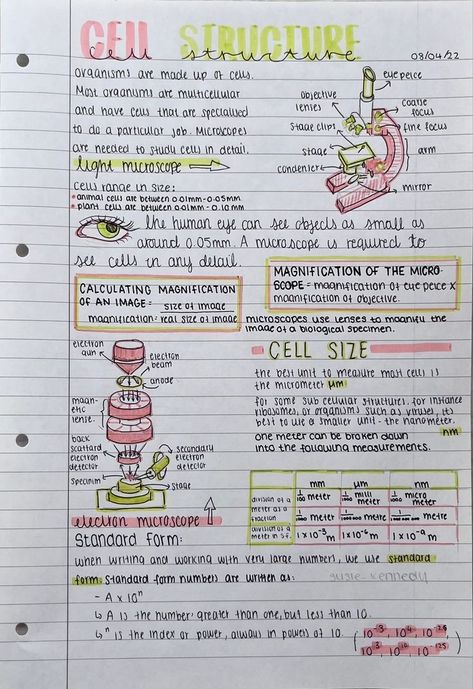 CELL STRUCTURE
cell structure
03/04/22
organisms are made up of cells.
Most organisms are multicellular
and have cells that are specialised
to do a particular job. Microscopes
are needed to study cells in detail.
light microscope
eye peice
objective
lenses
coarse
focus
stage clips
fine focus
stage
arm
condenser
mirror
cells range in size:
• animal cells are between 0.01mm-0.05mm.
• plant cells are between 0.01mm-0.10mm
the human eye can see objects as small as
around 0.05mm. A microscope is required to
see cells in any detail.
CALCULATING MAGNIFICATION
OF AN IMAGE = size of image
magnification: real size of image
MAGNIFICATION OF THE MICRO-
SCOPE = magnification of eye peice x
magnification of objective.
microscopes use lenses to magnify the
image of a biological specimen.
electron
gun
electron
beam
anode
magn-
etic
lense.
back
scattard
electron
detector
secondary
electron
detector
specimin
stage
electron microscope
CELL SIZE
the best unit to measure most cells is
the micrometer µm
for some sub cellular structures, for instance
ribosomes, or organisms such as viruses, its
best to use a smaller unit - the nanometer.
nm
one meter can be broken down
into the following measurements.
mm µm nm
division of a
meter as a
fraction
1/1000 meter 1/1000 milli meter 1/1000 micro meter
1/1000 meter 1/1000 000 metre
metre
division of a
meter in s.f.
1x10⁻³m 1x10⁻⁶m 1x10⁻⁹m
Standard form:
when writing and working with very large numbers, we use standard
form. Standard form numbers are written as:
- A x 10ⁿ
↳ A is the number: greater than one, but less than 10.
↳ ⁿ is the index or power, always in powers of 10.
susie-kennedy
(10⁻³, 10⁴, 10⁻²⁶
10³, 10¹⁰, 10⁻¹²⁵)